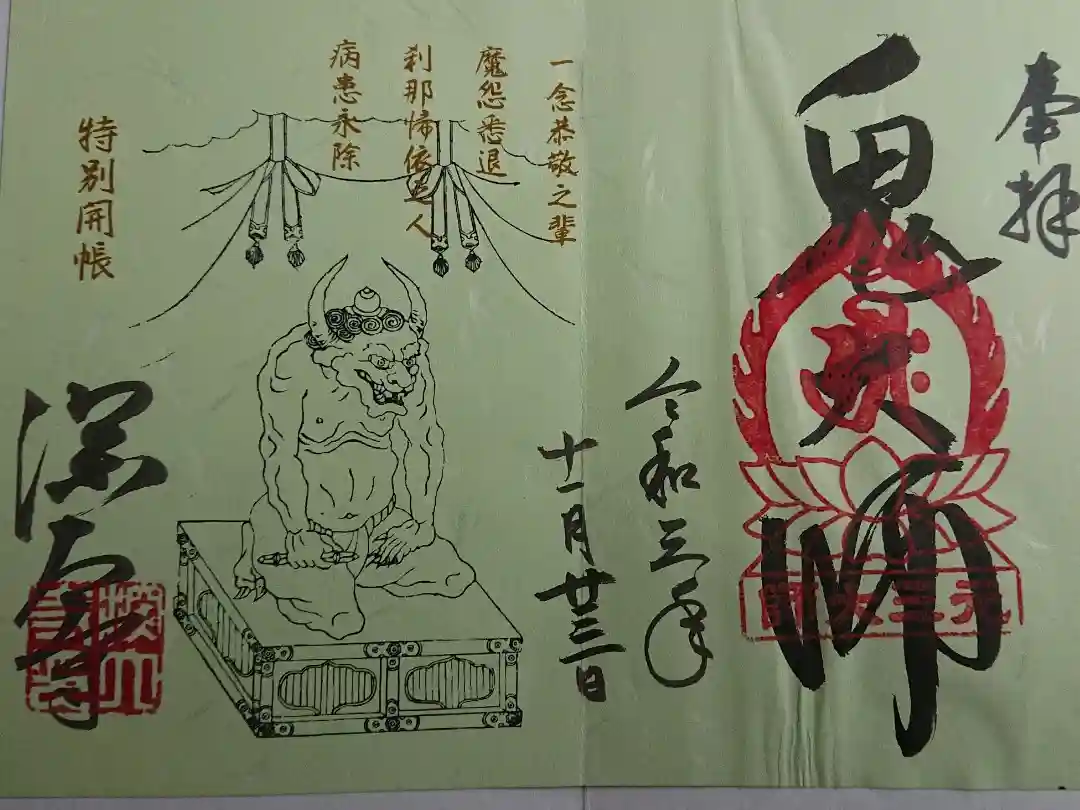 奉拝
鬼大師
元三大師
令和三年
十一月廿三日
一念恭敬之輩
魔怨悉退
刹那帰依之人
病患永除
特別開帳
深大寺